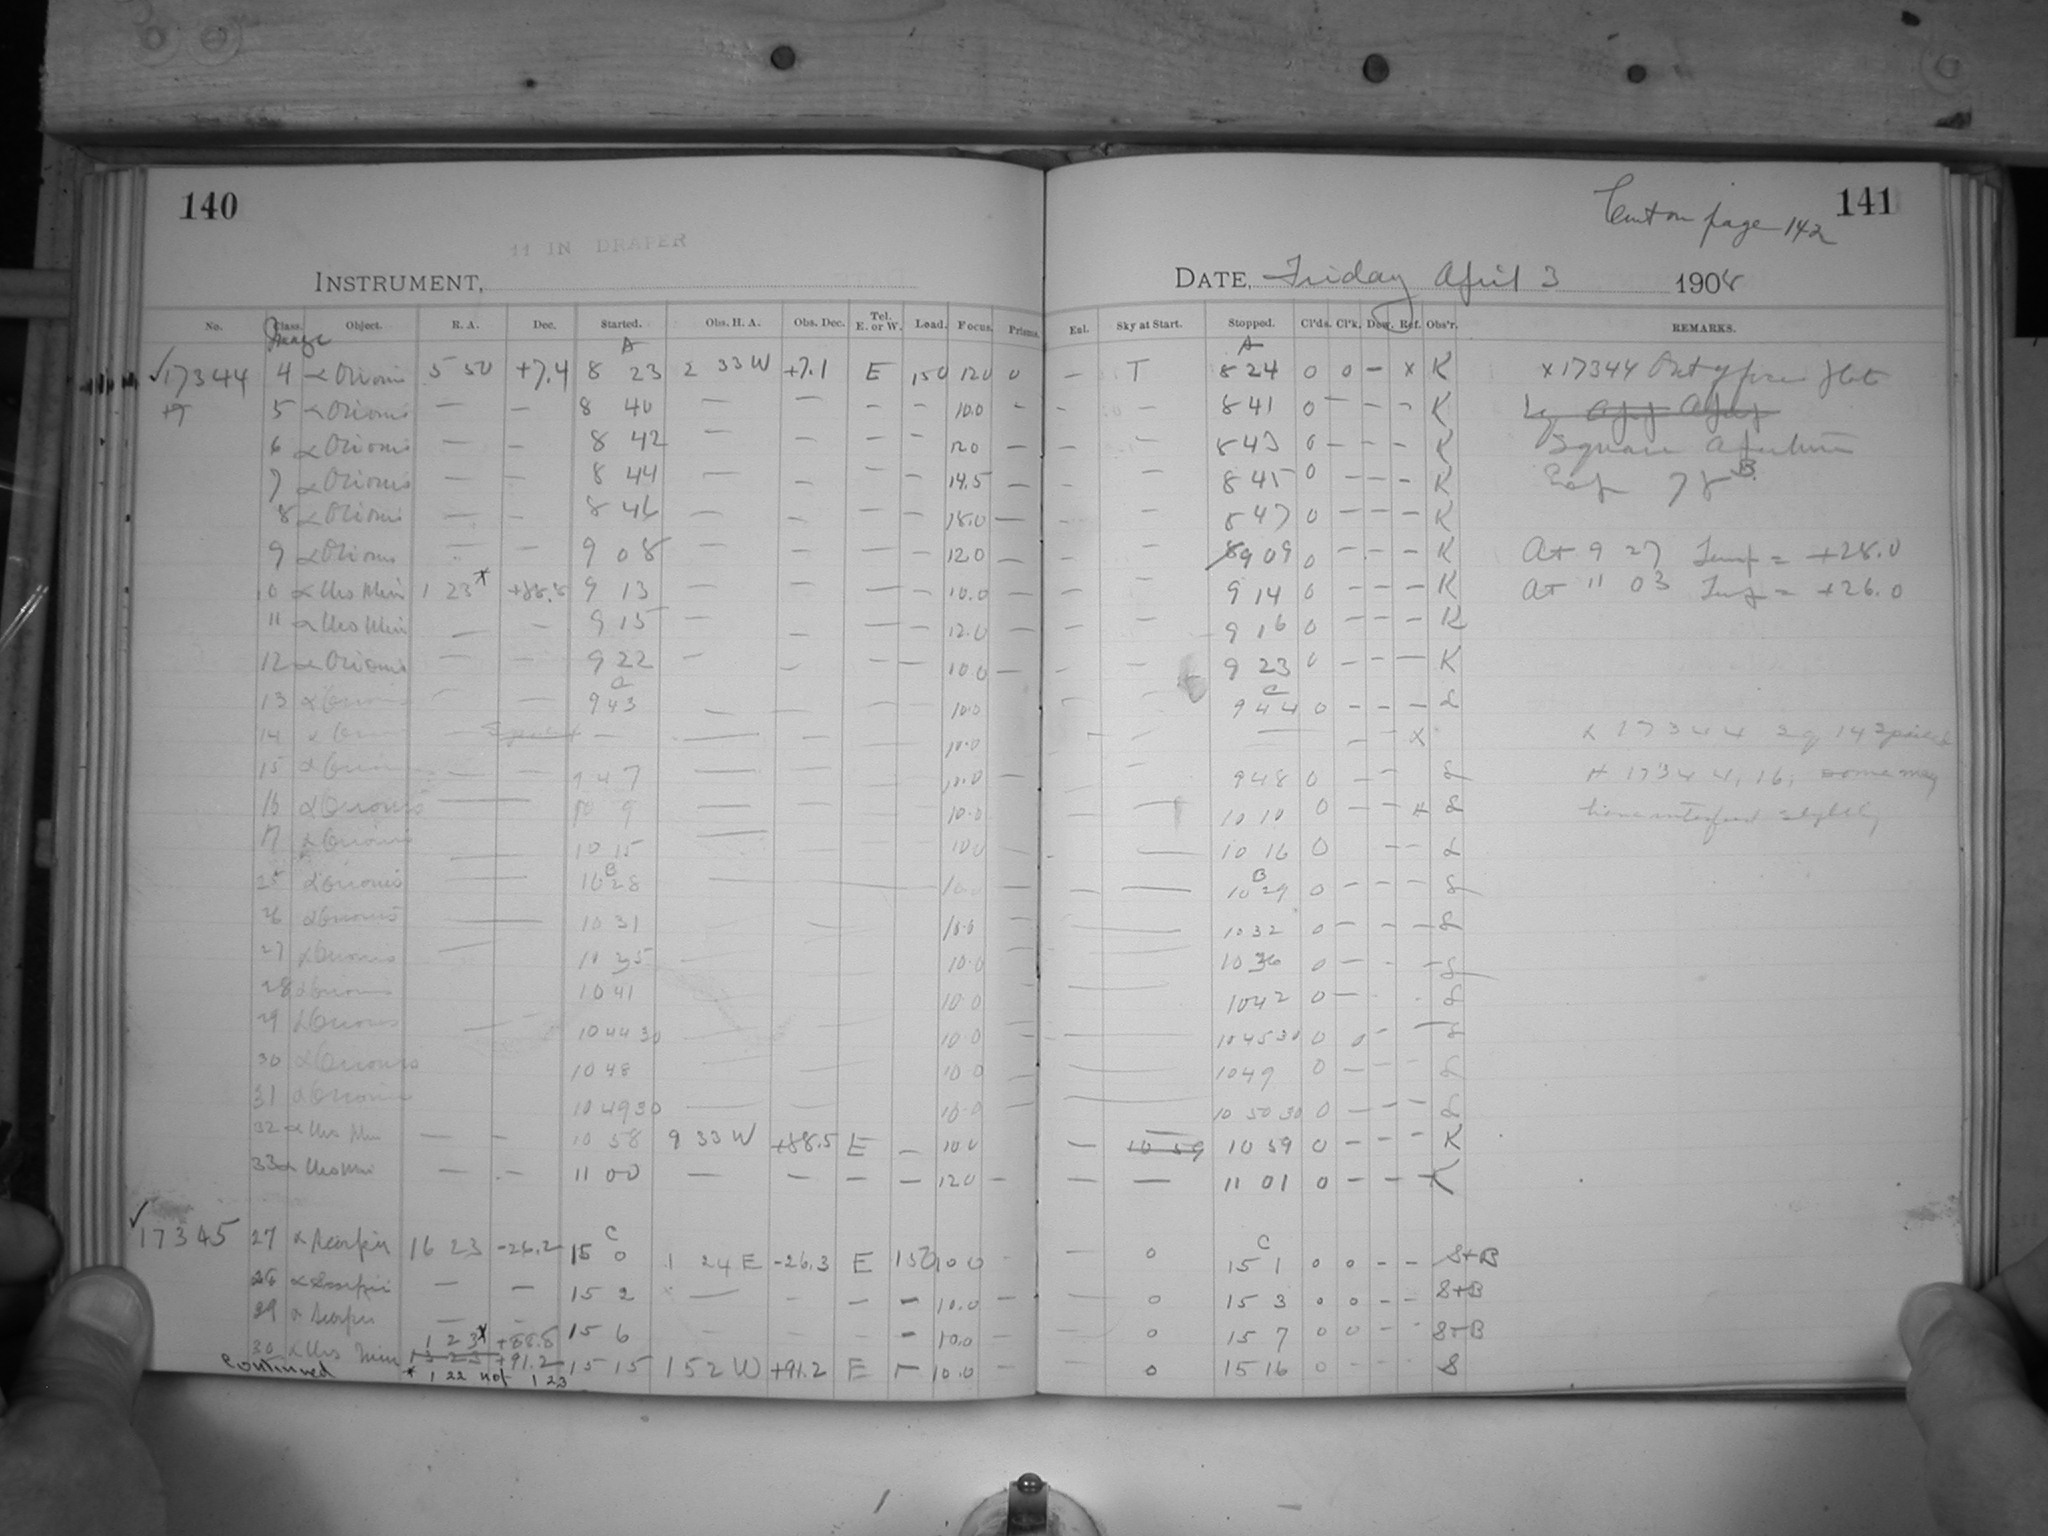 140
11 IN DRAPER
INSTRUMENT,
No. Class. Object. R. A. Dec. Started. Obs. H. A. Obs. Dec. Tel. E. or W. Load. Focus. Prisms.
Image
A
✓17344 4 α Orionis 5 50 +7.4 8 23 2 33 W +7.1 E 150 12.0 0
5 α Orionis — — 8 40 — — — — 10.0 —
6 α Orionis — — 8 42 — — — — 12.0 —
7 α Orionis — — 8 44 — — — — 14.5 —
8 α Orionis — — 8 46 — — — — 18.0 —
9 α Orionis — — 9 08 — — — — 12.0 —
10 α Urs Min 1 23* +88.8 9 13 — — — — 10.0 —
11 α Urs Min — — 9 15 — — — — 12.0 —
12 α Orionis — — 9 22 — — — — 10.0 —
C
13 α Orionis — — 9 43 — — — — 10.0
14 α — — — — 10.0
15 α Orionis — — 9 47 — 10.0
16 α Orionis — 10 9 — 10.0
17 α Orionis — 10 15 — 10.0
B
25 α Orionis — 10 28 — 10.0 —
26 α Orionis — 10 31 — — 10.0 —
27 α Orionis — 10 35 — — 10.0 —
28 α Orionis 10 41 — — 10.0
29 α Orionis — 10 44 30 — — 10.0 —
30 α Orionis 10 48 — — 10.0 —
31 α Orionis 10 49 30 — — 10.0 —
32 α Urs Min — — 10 58 9 33 W +88.5 E — 10.0
33 α Urs Min — — 11 00 — — — — 12.0 —
C
✓17345 27 α Scorpii 16 23 -26.2 15 0 1 24 E -26.3 E 150 10.0 —
28 α Scorpii — — 15 2 — — — — 10.0 —
29 α Scorpii — — 15 6 — — — — 10.0 —
1 23* +88.8
30 α Urs Min 13 23 +91.2 15 15 1 52 W +91.2 E — 10.0 —
continued * 1 22 not 1 23
141
Cont on page 142
DATE, Friday April 3 1908
Enl. Sky at Start. Stopped. Cl'ds. Cl'k. Dew. Ref. Obs'r. REMARKS.
A
— T 8 24 0 0 — x K x 17344
— — 8 41 0 — — — K
— — 8 43 0 — — — K Square Aperture
— — 8 45 0 — — — K
— — 8 47 0 — — — K
— — 9 09 0 — — — K At 9 27 Temp = +28.0
— — 9 14 0 — — — K At 11 03 Temp = +26.0
— — 9 16 0 — — — K
— — 9 23 0 — — — K
C
— — 9 44 0 — — — S
— — — — — x x 17344 14 spoiled
— — 9 48 0 — — S x 17344, 16, some may
— 10 10 0 — — x S have interfered slightly
— 10 16 0 — — S
B
— — 10 29 0 — — — S
— 10 32 0 — — — S
10 36 0 — — S
— 10 42 0 — S
— 10 45 30 0 0 — — S
— 10 49 0 — — — S
— 10 50 30 0 — — — S
— 10 59 10 59 0 — — — K
— — 11 01 0 — — — K
C
— 0 15 1 0 0 — — S+B
0 15 3 0 0 — — S+B
0 15 7 0 0 — — S+B
0 15 16 0 — — — S